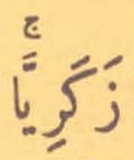 زَكَرِيَّاۚ